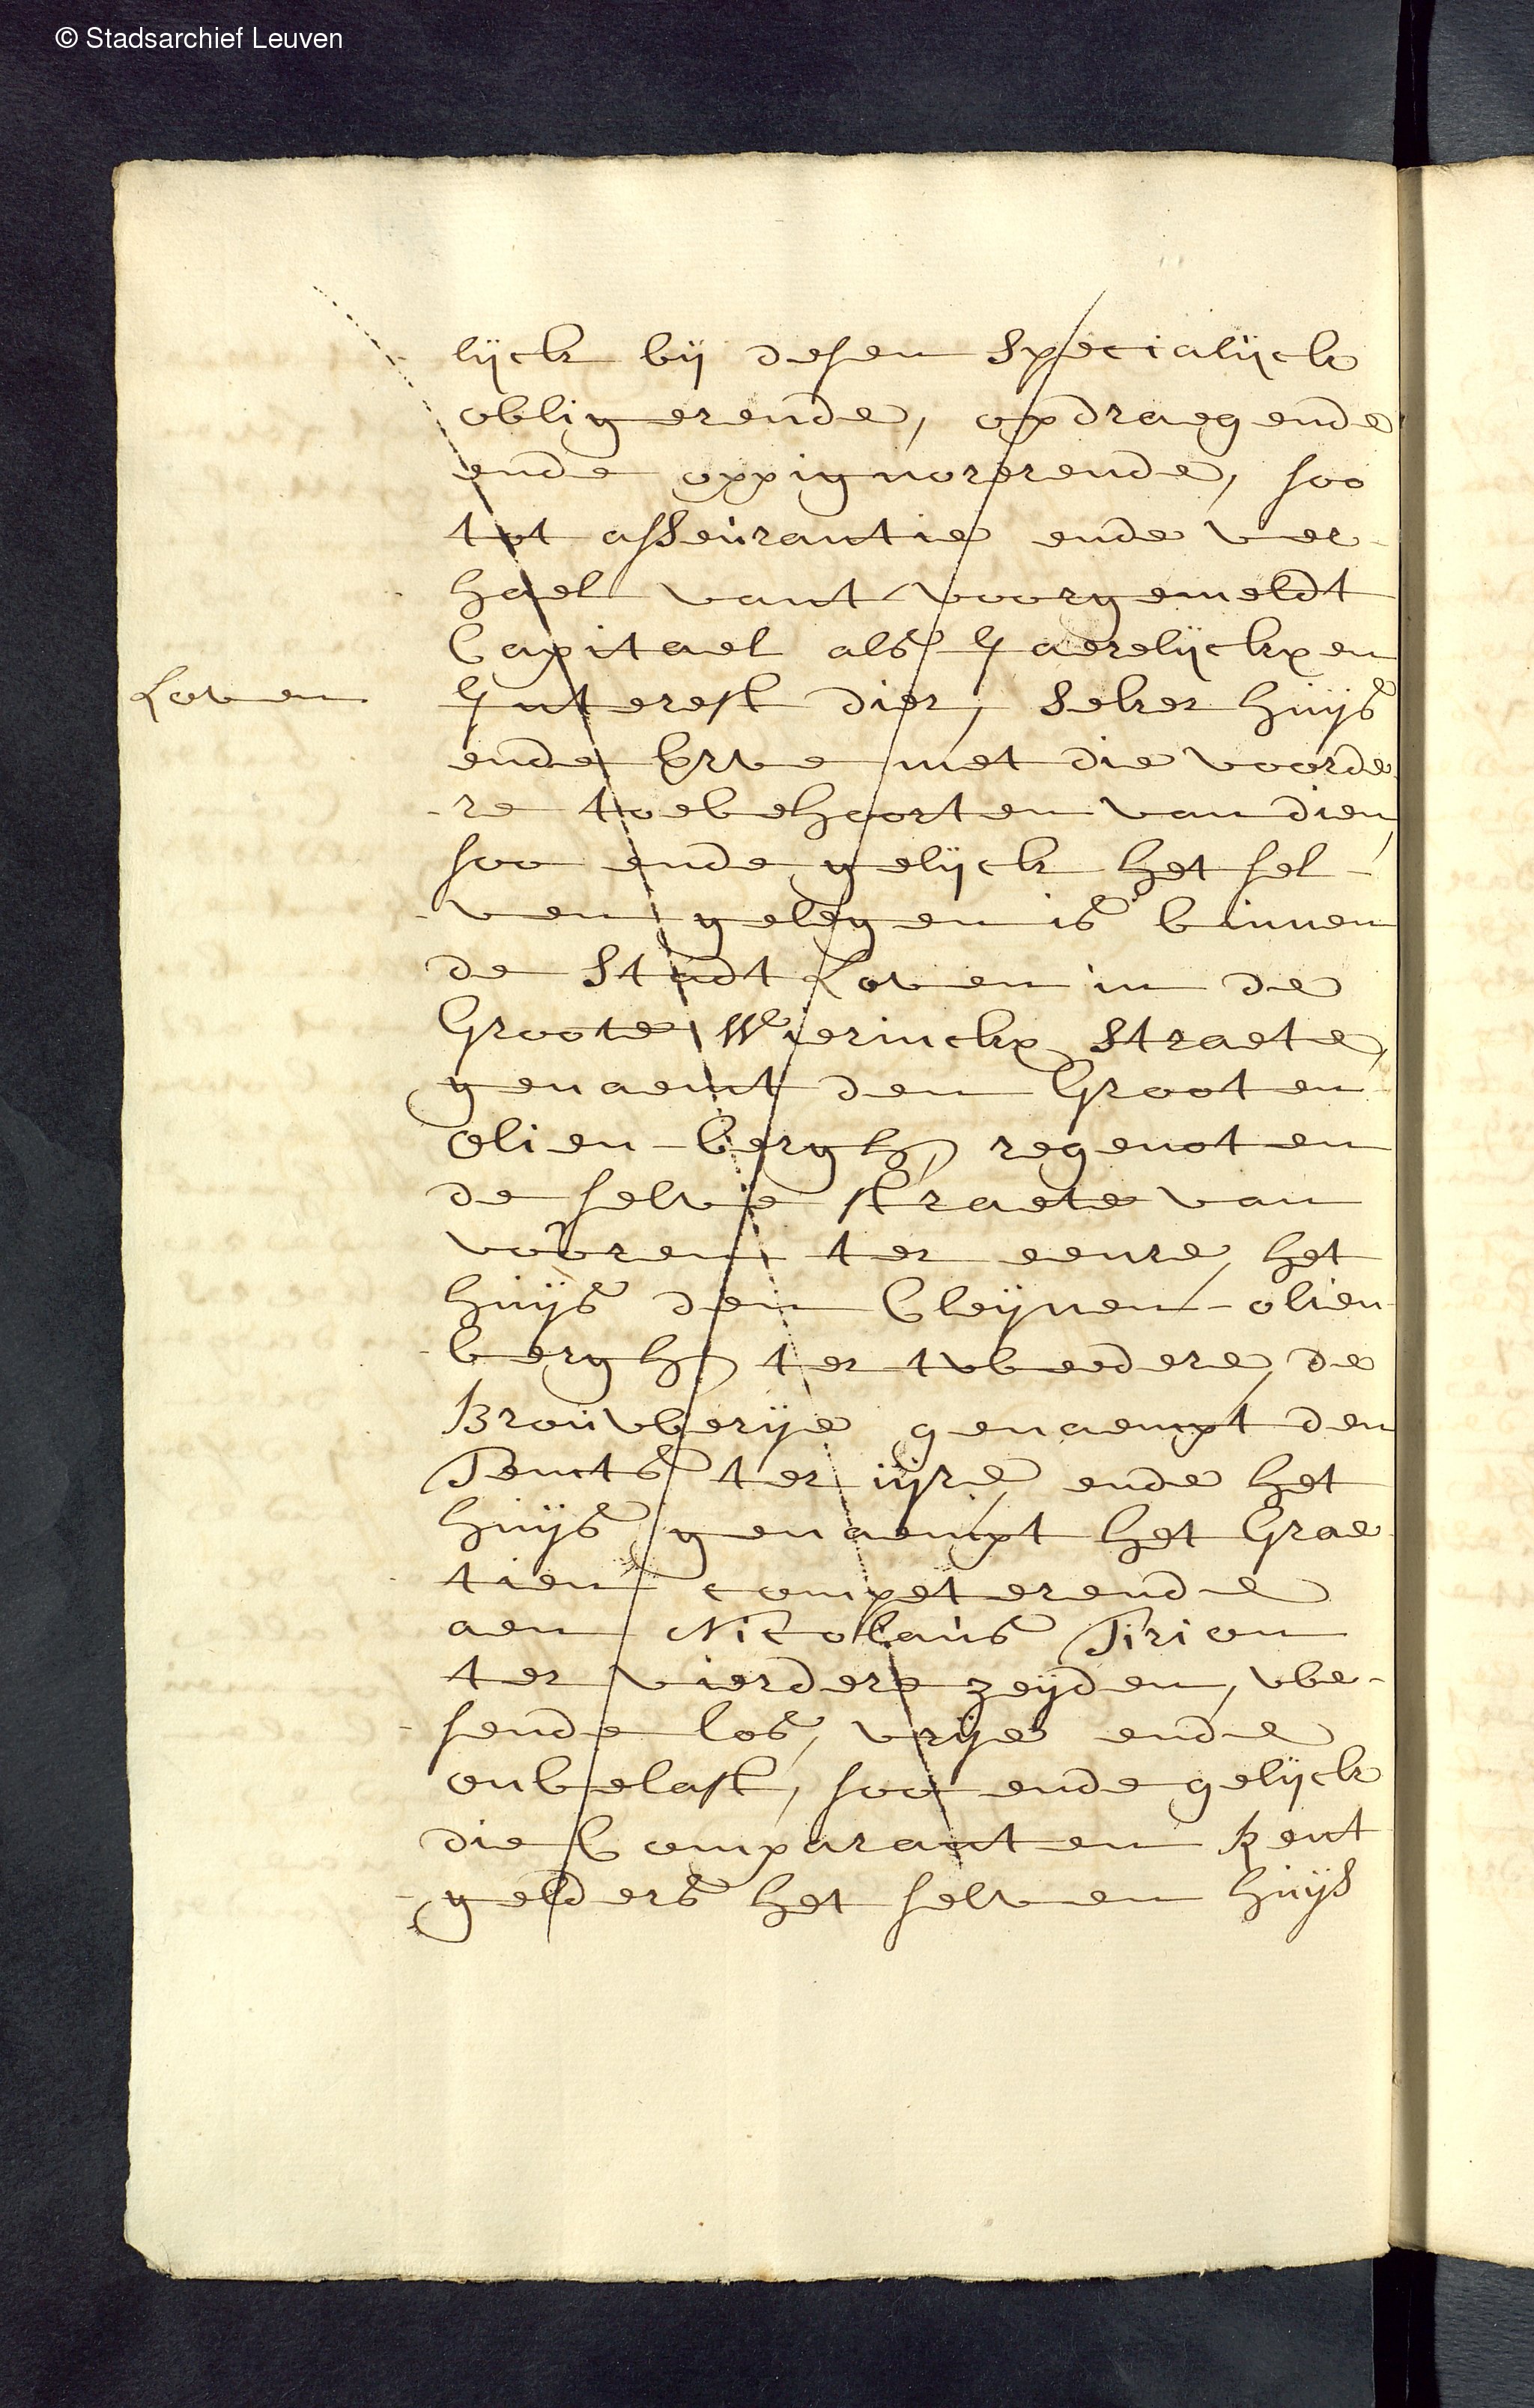 © Stadsarchief Leuven
lijck bij desen Specialijck
obligerende, opdraegende
ende oppignorerende, soo
tot asseurantie ende ver-
hael vant voorgemeldt
Capitael als Jaerelijckxen
Loven
Interest dier, Seker huijs
ende Erve met die voorde
-re toebehoorten van dien,
soo ende gelijck het sel-
-ven gelegen is binnen
de Stadt Loven in de
Groote Wierinckx Straete,
genaemt den Grooten
olien-bergh, regenoten
de selve straete van
vooren ter eenre, het
huijs den Cleijnen-olien
-bergh ter tweedere, de
Brouwerije genaempt den
ter iijre, ende het
huijs genaempt het Grae
-tien competerende
aen Nicolaus Tirion
ter vierdere zeijden, we-
-sende los, vrije ende
onbelast, soo ende gelijck
die Comparanten Rent
-gelders het selven huijs